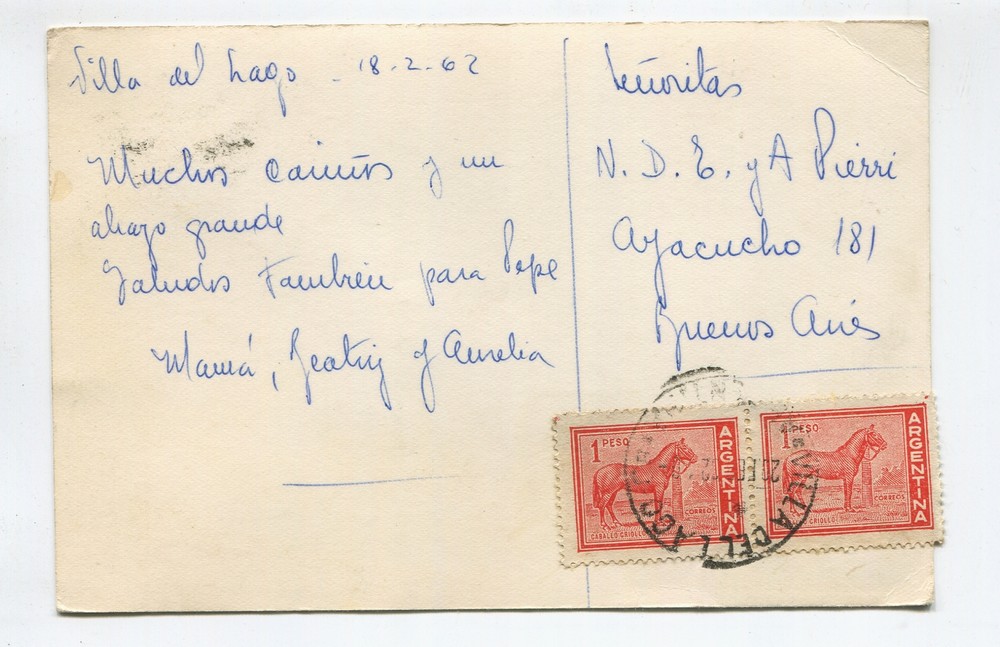 Villa del Lago - 18-2-62
Muchos cariños y un
abrazo grande
Saludos también para Pepe
Mamá, Beatriz y Amelia
Señoritas
N. D. E. y A Pierri
Ayacucho 181
Buenos Aires
1 PESO
ARGENTINA
CORREOS
CABALLO CRIOLLO
1 PESO
ARGENTINA
CORREOS
CRIOLLO
VILLA DEL LAGO